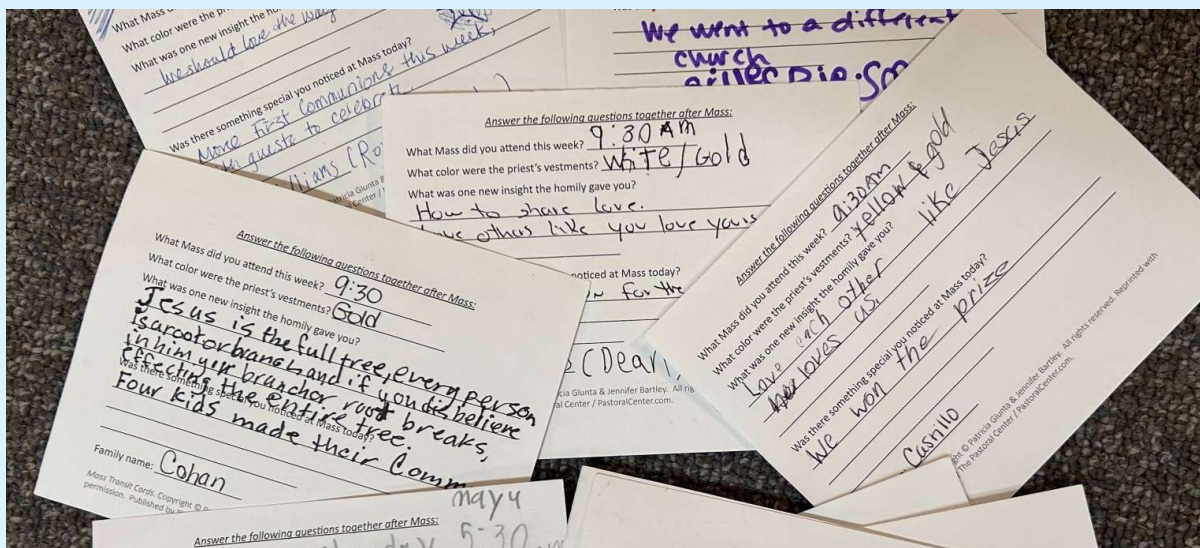 What Mass
What color were the pr
What was one new insight the ho
We should love the way
Was there something special you noticed at Mass today?
More First Communions this week,
to celebrate
We went to a different
church
Answer the following questions together after Mass:
What Mass did you attend this week? 9:30 AM
What color were the priest's vestments? White/Gold
What was one new insight the homily gave you?
How to share love.
others like you love yours
noticed at Mass today?
for the
(Dear
cia Giunta & Jennifer Bartley. All rig
al Center / PastoralCenter.com.
Answer the following questions together after Mass:
What Mass did you attend this week? 9:30
What color were the priest's vestments? Gold
What was one new insight the homily gave you?
Jesus is the full tree, every person
is a root or branch and if you disbelieve
in him your branch or root breaks,
effecting the entire tree.
Was there something special you noticed at Mass today?
Four kids made their Comm
Family name: Cohan
Mass Transit Cards. Copyright ©
permission. Published by
Answer the following questions together after Mass:
What Mass did you attend this week? 9:30AM
What color were the priest's vestments? yellow & gold
What was one new insight the homily gave you?
Love each other like Jesus
loves us.
Was there something special you noticed at Mass today?
We won the prize
ght © Patricia Giunta & Jennifer Bartley. All rights reserved. Reprinted with
The Pastoral Center / PastoralCenter.com.
Answer the following questions together after Mass:
may 4
5-30